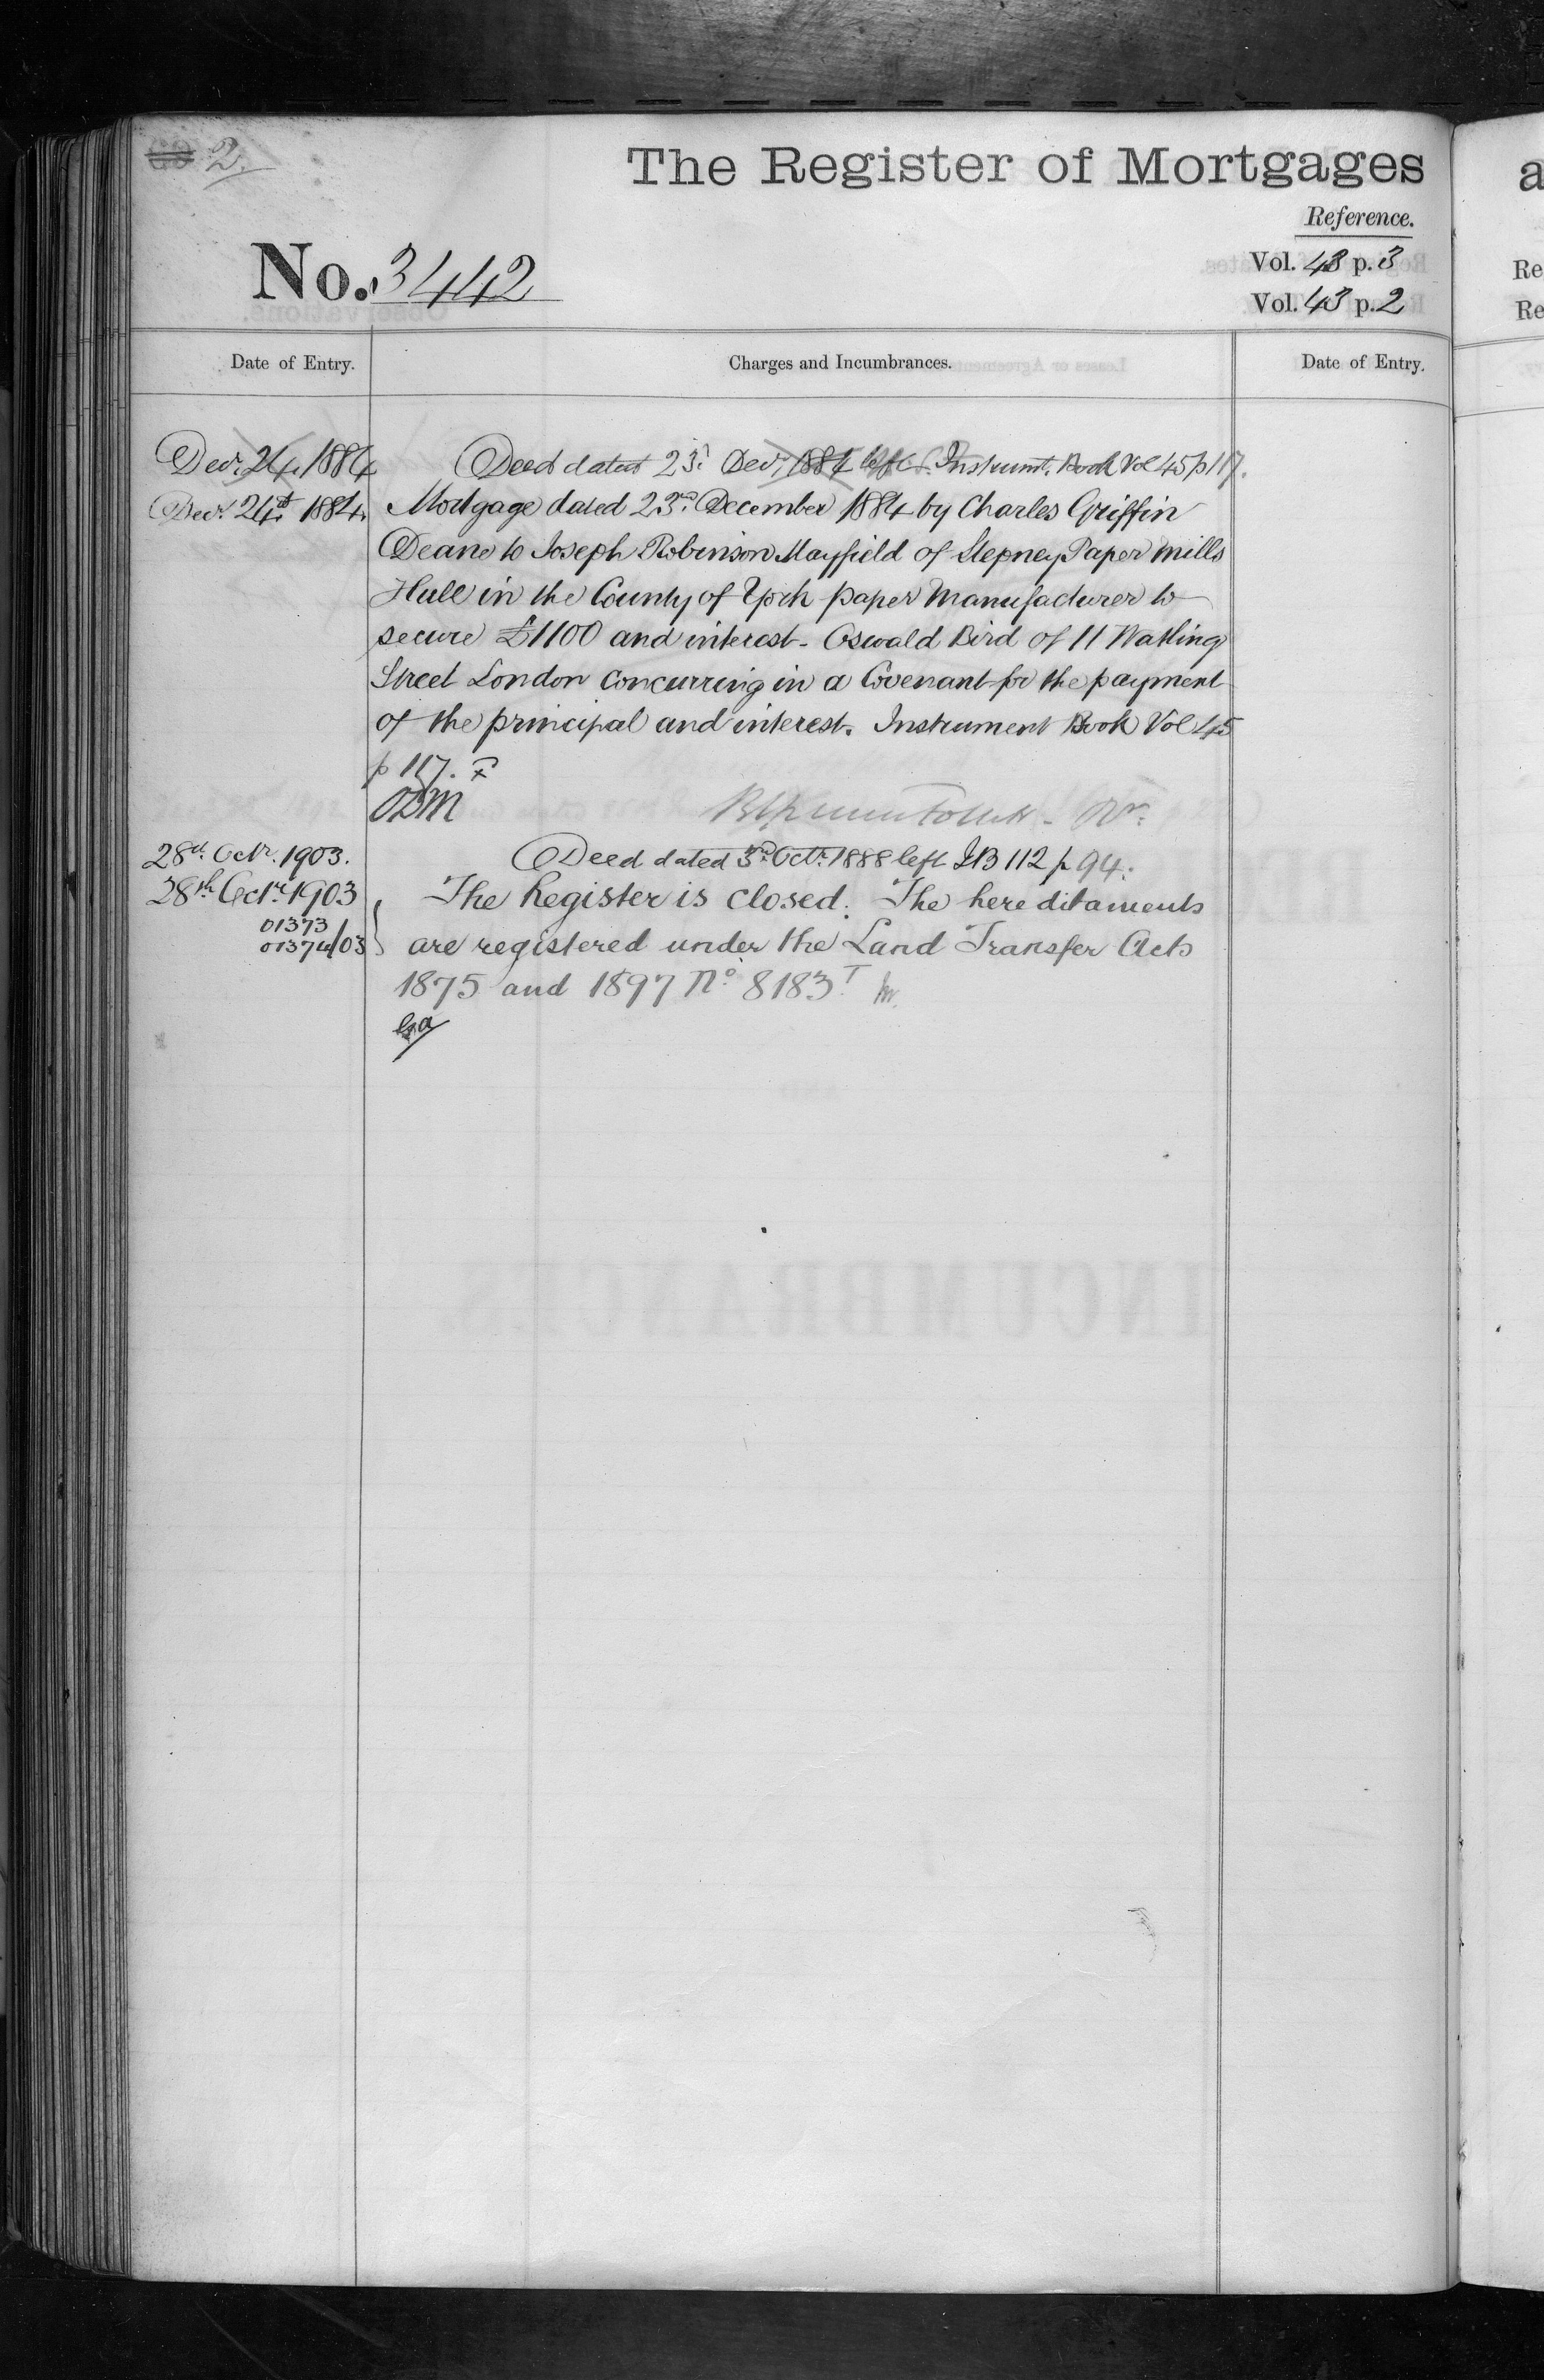 2.
The Register of Mortgages
Reference.
No. 3442
Vol. 43 p. 3
Vol. 43 p. 2
Date of Entry.
Charges and Incumbrances.
Date of Entry.
Decr. 24, 1884
Deed dated 23rd Decr. 1884 left. Instrumt. Book Vol 45 p 117.
Decr. 24th 1884.
Mortgage dated 23rd December 1884 by Charles Griffin
Deane to Joseph Robinson Mayfield of Stepney Paper Mills
Hull in the County of York paper Manufacturer to
secure £1100 and interest - Oswald Bird of 11 Watling
Street London Concurring in a Covenant for the payment
of the principal and interest. Instrument Book Vol 45
p 117.
28th Octr. 1903.
Deed dated 3rd Octr. 1888 left IB 112 p 94.
28th Octr. 1903
The Register is closed. The hereditaments
01373
01374/03
are registered under the Land Transfer Acts
1875 and 1897 No. 8183T.
a
Re
Re
INCUMBRANCES